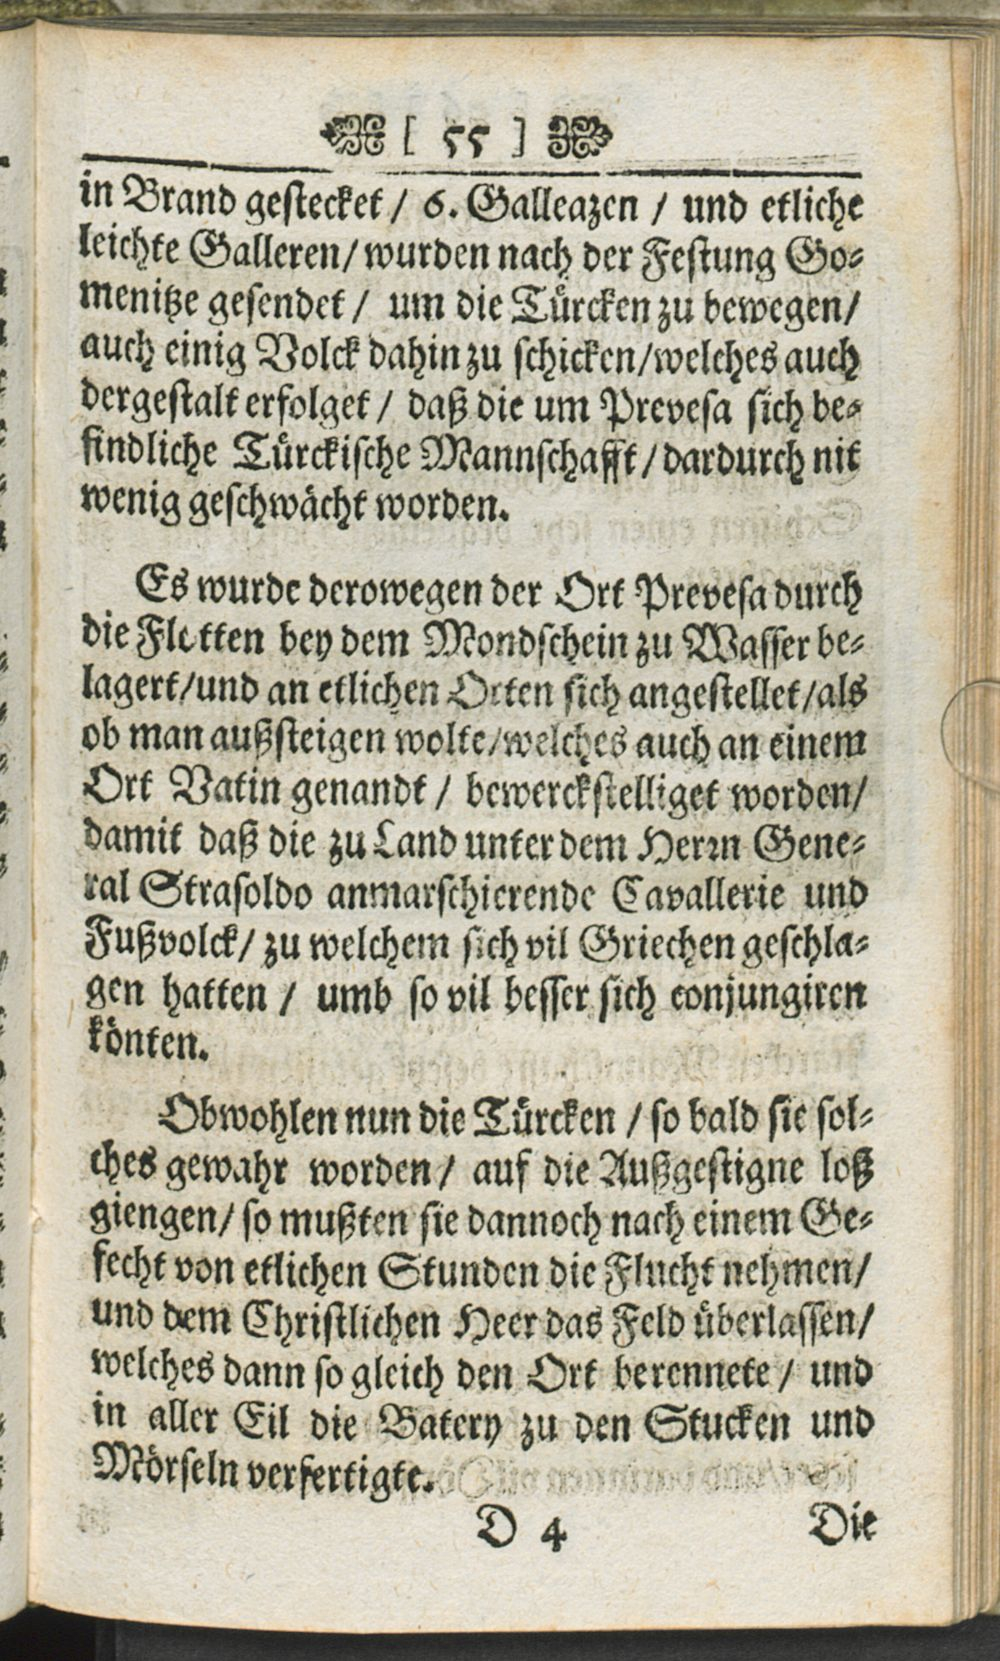 [ 55 ]
in Brand gestecket / 6. Galleazen / und etliche
leichte Galleren / wurden nach der Festung Go-
menitze gesendet / um die Türcken zu bewegen /
auch einig Volck dahin zu schicken / welches auch
dergestalt erfolget / daß die um Prevesa sich be-
findliche Türckische Mannschafft / dardurch nit
wenig geschwächt worden.
Es wurde derowegen der Ort Prevesa durch
die Flotten bey dem Mondschein zu Wasser be-
lagert / und an etlichen Orten sich angestellet / als
ob man außsteigen wolte / welches auch an einem
Ort Vatin genandt / bewerckstelliget worden /
damit daß die zu Land unter dem Herrn Gene-
ral Strasoldo anmarschierende Cavallerie und
Fußvolck / zu welchem sich vil Griechen geschla-
gen hatten / umb so vil besser sich conjungiren
könten.
Obwohlen nun die Türcken / so bald sie sol-
ches gewahr worden / auf die Außgestigne loß
giengen / so mußten sie dannoch nach einem Ge-
fecht von etlichen Stunden die Flucht nehmen /
und dem Christlichen Heer das Feld überlassen /
welches dann so gleich den Ort berennete / und
in aller Eil die Batery zu den Stucken und
Mörseln verfertigte.
D 4 Die